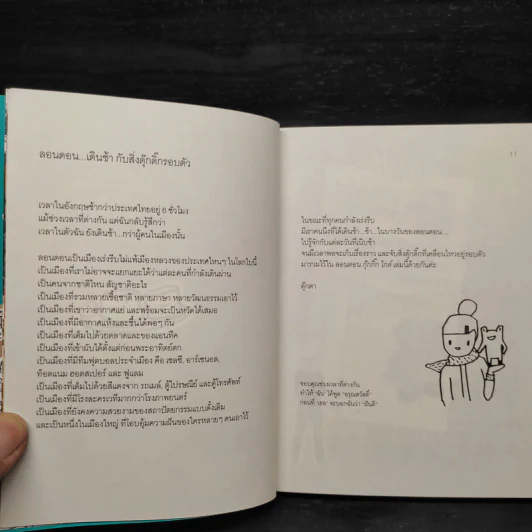 ลอนดอน...เดินช้า กับสิ่งตุ๊กติ๊กรอบตัว
เวลาในอังกฤษช้ากว่าประเทศไทยอยู่ 6 ชั่วโมง
แม้ช่วงเวลาที่ต่างกัน แต่ฉันกลับรู้สึกว่า
เวลาในตัวฉัน ยังเดินช้า...กว่าผู้คนในเมืองนั้น
ลอนดอนเป็นเมืองเร่งรีบไม่แพ้เมืองหลวงของประเทศไหนๆ ในโลกใบนี้
เป็นเมืองที่เราไม่อาจจะแยกแยะได้ว่าแต่ละคนที่กำลังเดินผ่าน
เป็นคนจากชาติไหน สัญชาติอะไร
เป็นเมืองที่รวมหลายเชื้อชาติ หลายภาษา หลายวัฒนธรรมเอาไว้
เป็นเมืองที่เขาว่าอากาศแย่ และพร้อมจะเป็นหวัดได้เสมอ
เป็นเมืองที่มีอากาศแห้งและชื้นได้พอๆ กัน
เป็นเมืองที่เต็มไปด้วยตลาดและของแอนทีค
เป็นเมืองที่เข้าผับได้ตั้งแต่ก่อนพระอาทิตย์ตก
เป็นเมืองที่มีทีมฟุตบอลประจำเมือง คือ เชลซี, อาร์เซนอล,
ท็อตแนม ฮอตสเปอร์ และ ฟูแลม
เป็นเมืองที่เต็มไปด้วยสีแดงจาก รถเมล์, ตู้ไปรษณีย์ และตู้โทรศัพท์
เป็นเมืองที่มีโรงละครเวทีมากกว่าโรงภาพยนตร์
เป็นเมืองที่ยังคงความสวยงามของสถาปัตยกรรมแบบดั้งเดิม
และเป็นหนึ่งในเมืองใหญ่ ที่โอบอุ้มความฝันของใครหลายๆ คนเอาไว้
11
ในขณะที่ทุกคนกำลังเร่งรีบ
มีเราคนนึงที่ได้เดินช้า...ช้า...ในบางวันของลอนดอน....
ไปรู้จักกับแต่ละวันที่เนิบช้า
จนมีเวลาพอจะเก็บเรื่องราว และจับสิ่งตุ๊กติ๊กที่เคลื่อนไหวอยู่รอบตัว
มารวมไว้ใน ลอนดอน กุ๊กกิ๊ก ไกด์ เล่มนี้ด้วยกันค่ะ
ตุ๊กตา
ขอบคุณช่วงเวลาที่ต่างกัน
ทำให้ 'ฉัน' ได้พูด 'อรุณสวัสดิ์'
ก่อนที่ 'เธอ' จะบอกฉันว่า 'ฝันดี'